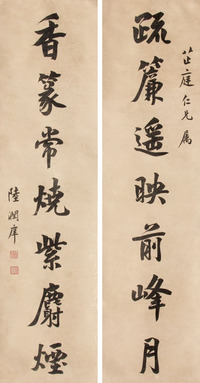 芷庭仁兄属
疏簾遥映前峰月
香篆常燒紫麝煙
陸潤庠